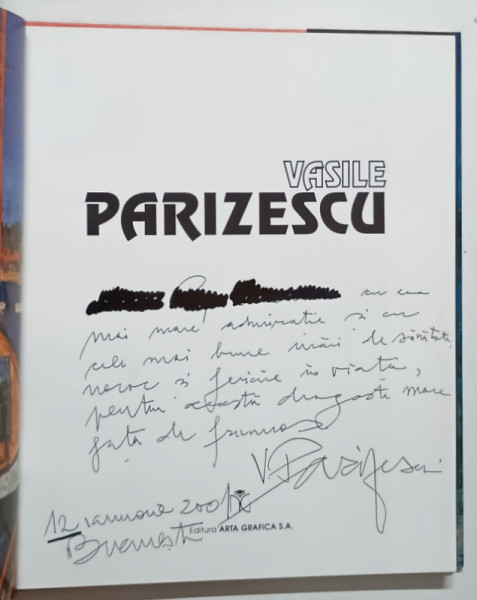 VASILE
PARIZESCU
cu cea
mai mare admirație și cu
cele mai bune urări de sănătate,
noroc și fericire în viață,
pentru această dragoste mare
față de frumos
V. Parizescu
12 ianuarie 2001
București
Editura ARTA GRAFICA S.A.